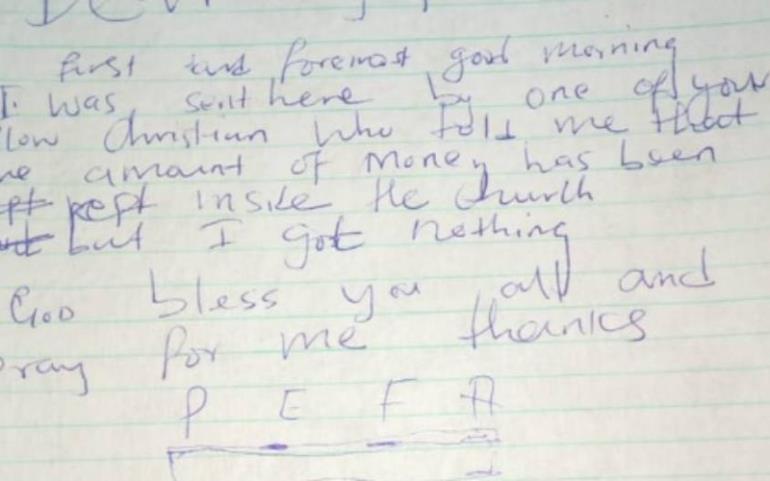 first and foremost good morning
I. was sent here by one of your
low Christian who told me that
he amount of money has been
kept inside the church
but I got nothing
God bless you all and
pray for me thanks
P E F A